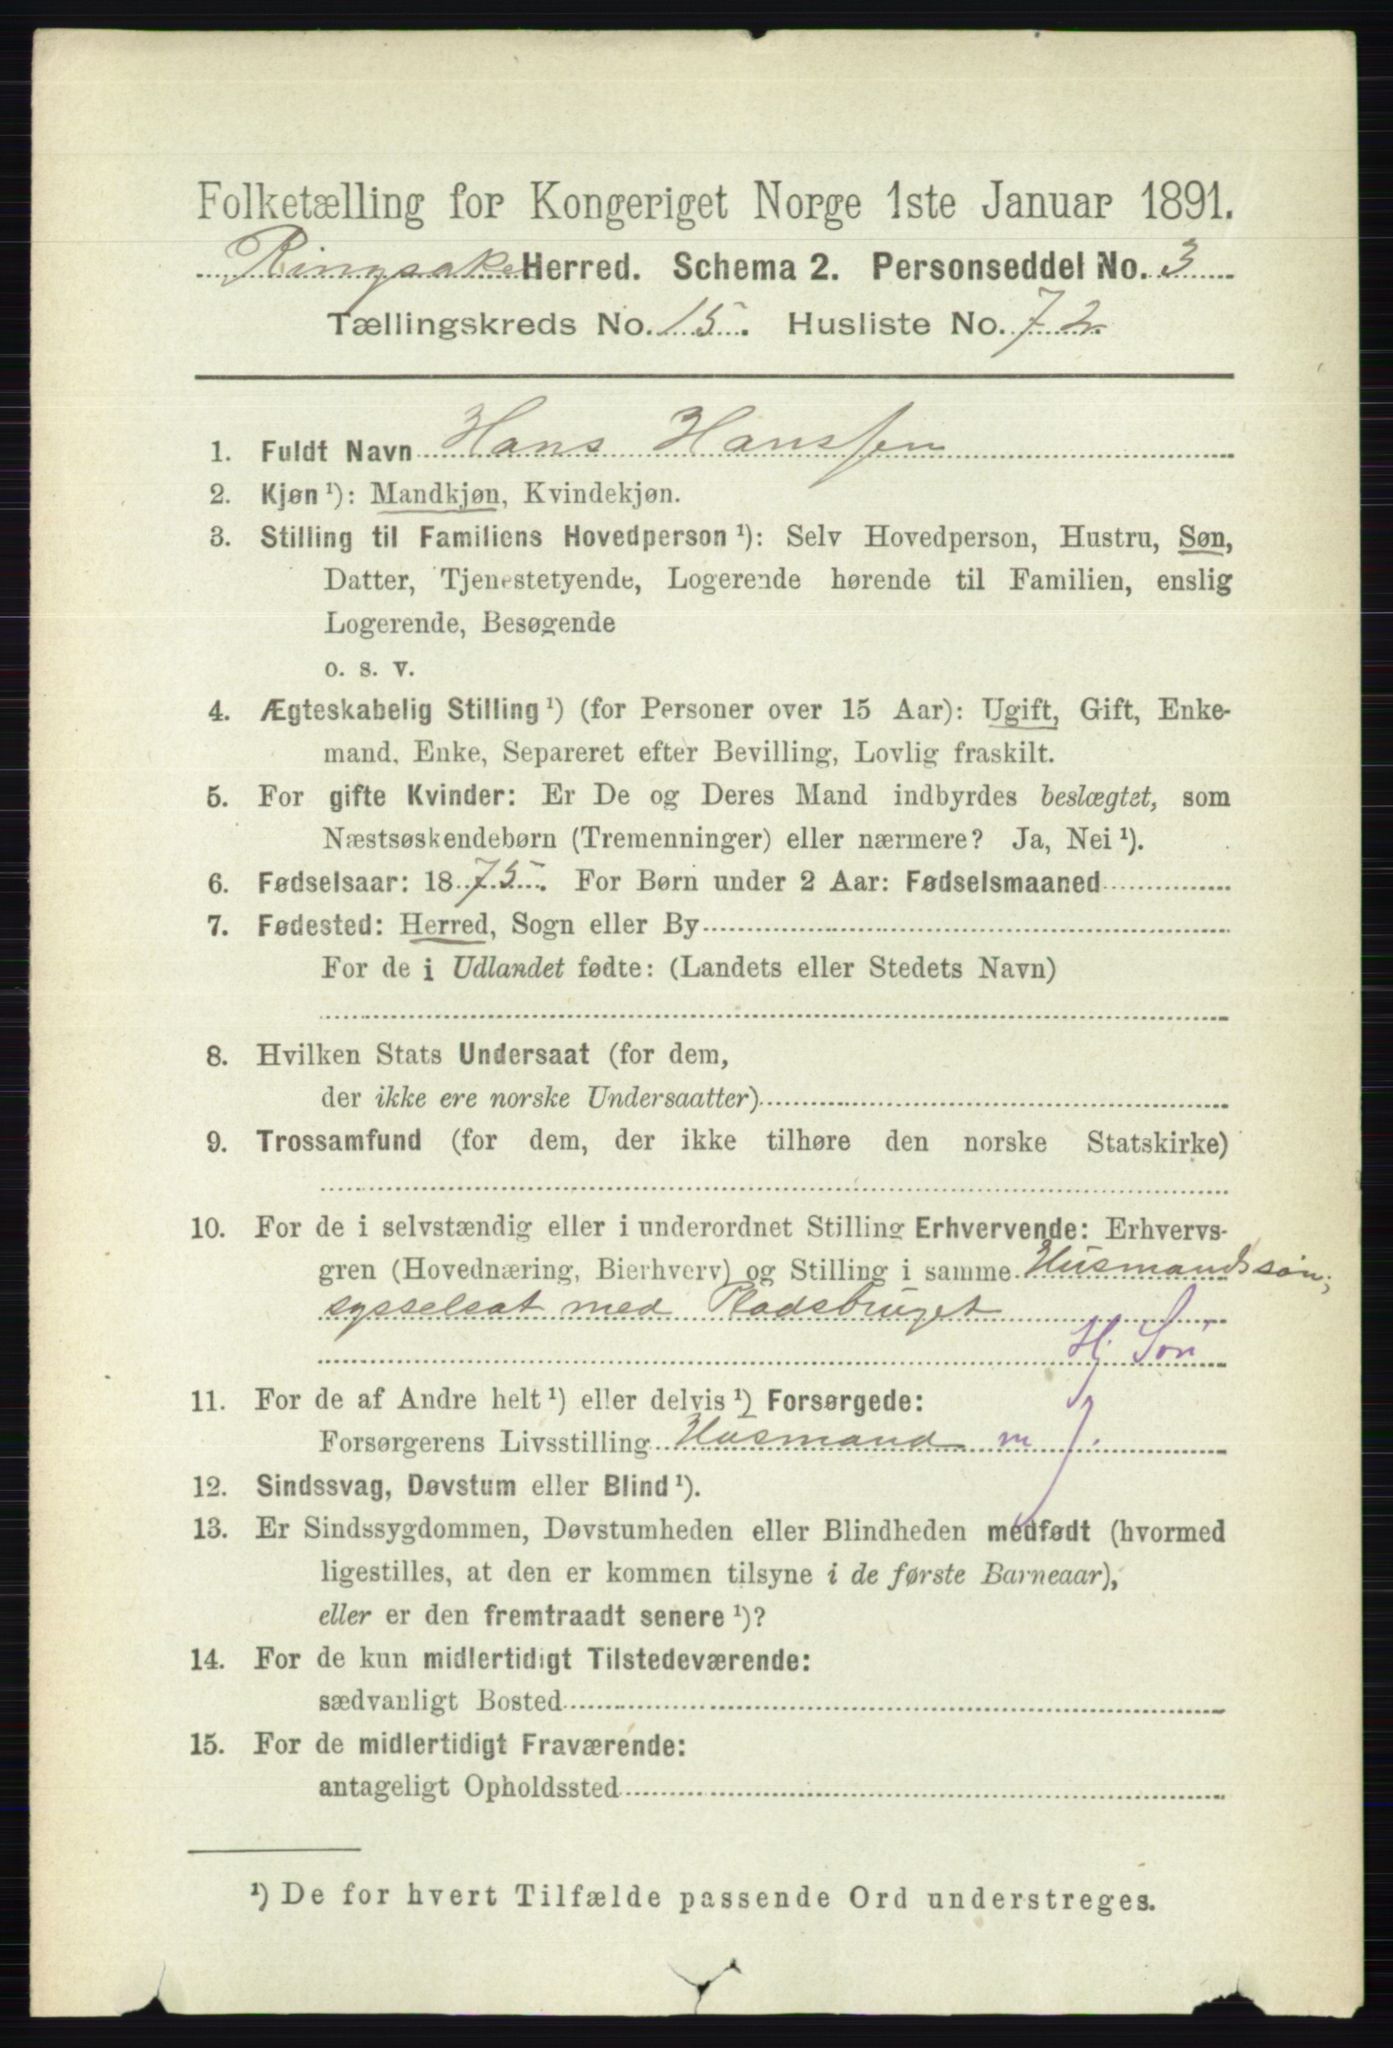 Folketælling for Kongeriget Norge 1ste Januar 1891.
Ringsaker Herred. Schema 2. Personseddel No. 3
Tællingskreds No. 15. Husliste No. 72
1. Fuldt Navn Hans Hanssen
2. Kjøn ¹): Mandkjøn, Kvindekjøn.
3. Stilling til Familiens Hovedperson ¹): Selv Hovedperson, Hustru, Søn,
Datter, Tjenestetyende, Logerende hørende til Familien, enslig
Logerende, Besøgende
o. s. v.
4. Ægteskabelig Stilling ¹) (for Personer over 15 Aar): Ugift, Gift, Enke-
mand, Enke, Separeret efter Bevilling, Lovlig fraskilt.
5. For gifte Kvinder: Er De og Deres Mand indbyrdes beslægtet, som
Næstsøskendebørn (Tremenninger) eller nærmere? Ja, Nei ¹).
6. Fødselsaar: 1875. For Børn under 2 Aar: Fødselsmaaned
7. Fødested: Herred, Sogn eller By
For de i Udlandet fødte: (Landets eller Stedets Navn)
8. Hvilken Stats Undersaat (for dem,
der ikke ere norske Undersaatter)
9. Trossamfund (for dem, der ikke tilhøre den norske Statskirke)
10. For de i selvstændig eller i underordnet Stilling Erhvervende: Erhvervs-
gren (Hovednæring, Bierhverv) og Stilling i samme Husmandssøn,
sysselsat med Pladsbruget
Hj. Søn
11. For de af Andre helt ¹) eller delvis ¹) Forsørgede:
Forsørgerens Livsstilling Husmand m J.
12. Sindssvag, Døvstum eller Blind ¹).
13. Er Sindssygdommen, Døvstumheden eller Blindheden medfødt (hvormed
ligestilles, at den er kommen tilsyne i de første Barneaar),
eller er den fremtraadt senere ¹)?
14. For de kun midlertidigt Tilstedeværende:
sædvanligt Bosted
15. For de midlertidigt Fraværende:
antageligt Opholdssted
¹) De for hvert Tilfælde passende Ord understreges.